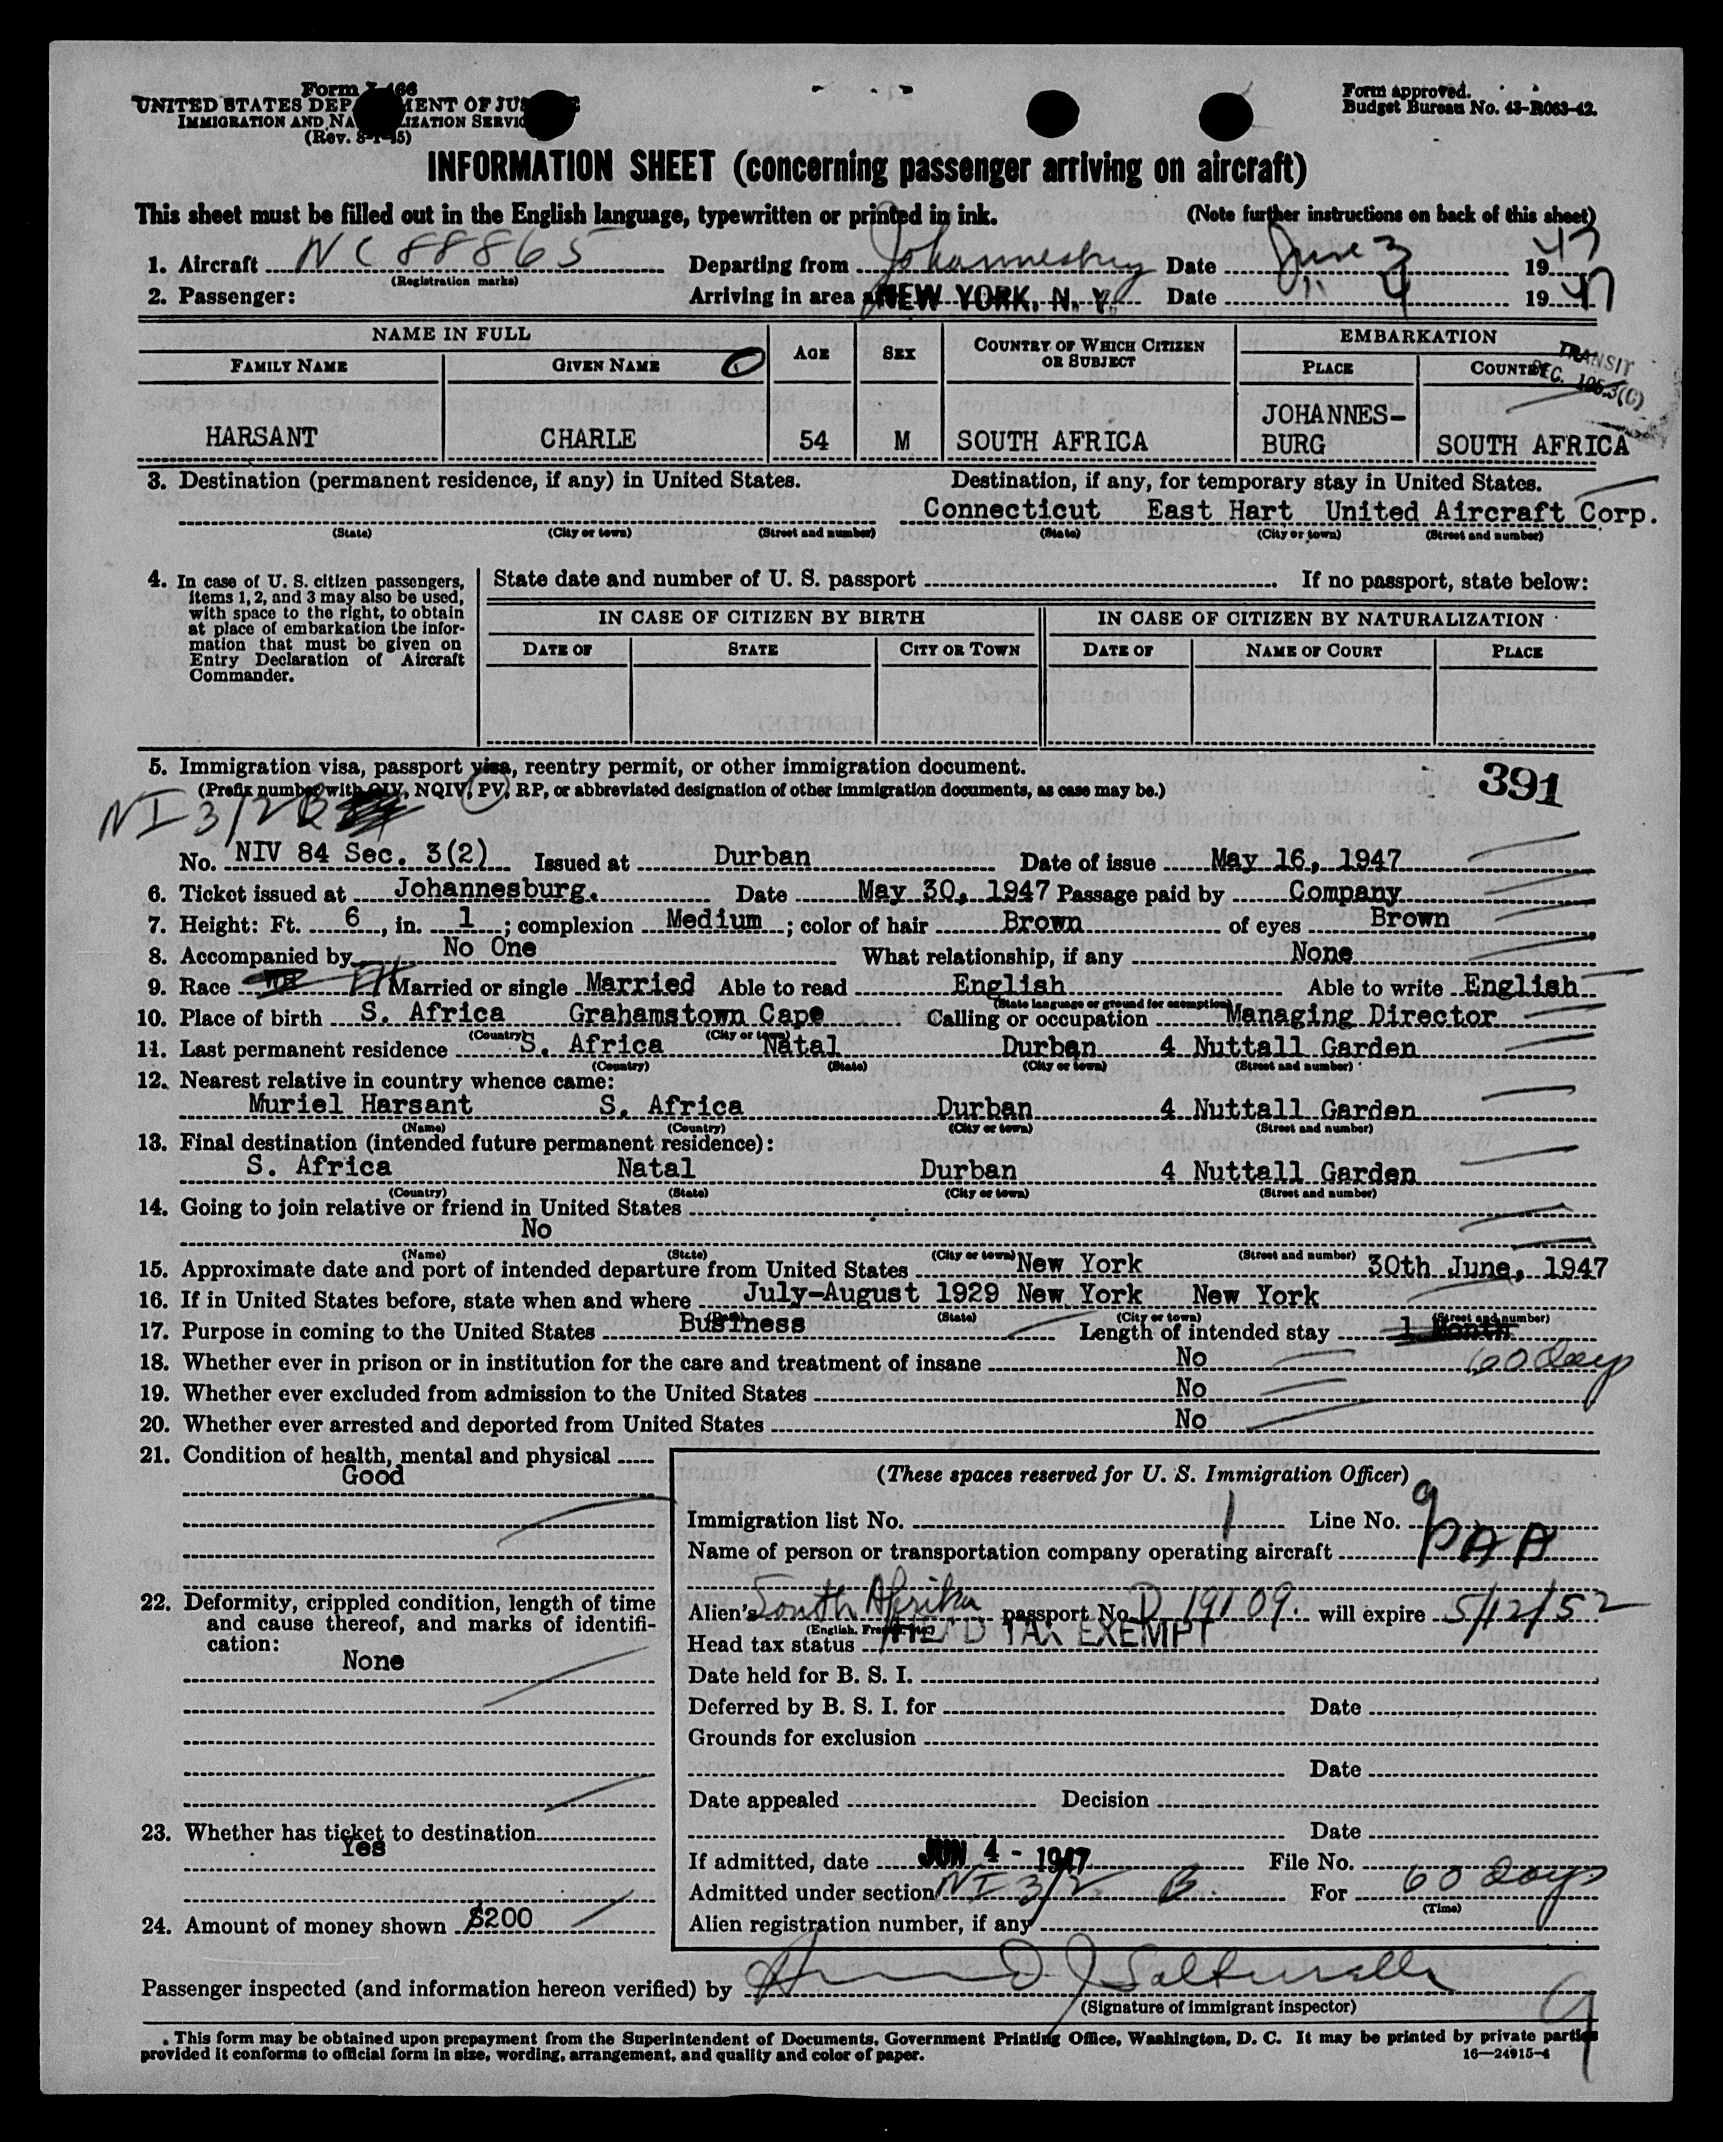 Form I-466
UNITED STATES DEPARTMENT OF JUSTICE
IMMIGRATION AND NATURALIZATION SERVICE
(Rev. 8-1-45)
Form approved.
Budget Bureau No. 43-R063-42.
INFORMATION SHEET (concerning passenger arriving on aircraft)
This sheet must be filled out in the English language, typewritten or printed in ink. (Note further instructions on back of this sheet)
1. Aircraft NC 88865 Departing from Johannesburg Date June 3 1947
(Registration marks)
2. Passenger: Arriving in area at NEW YORK, N. Y. Date " 4 1947
NAME IN FULL AGE SEX COUNTRY OF WHICH CITIZEN OR SUBJECT EMBARKATION
FAMILY NAME GIVEN NAME PLACE COUNTRY
TRANSIT
SEC. 105.3(C)
HARSANT CHARLE 54 M SOUTH AFRICA JOHANNES-
BURG SOUTH AFRICA
3. Destination (permanent residence, if any) in United States. Destination, if any, for temporary stay in United States.
Connecticut East Hart United Aircraft Corp.
(State) (City or town) (Street and number) (State) (City or town) (Street and number)
4. In case of U. S. citizen passengers, items 1, 2, and 3 may also be used, with space to the right, to obtain at place of embarkation the infor-
mation that must be given on Entry Declaration of Aircraft Commander.
State date and number of U. S. passport If no passport, state below:
IN CASE OF CITIZEN BY BIRTH IN CASE OF CITIZEN BY NATURALIZATION
DATE OF STATE CITY OR TOWN DATE OF NAME OF COURT PLACE
5. Immigration visa, passport visa, reentry permit, or other immigration document.
391
(Prefix number with QIV, NQIV, PV, RP, or abbreviated designation of other immigration documents, as case may be.)
NI 3/2 B
No. NIV 84 Sec. 3(2) Issued at Durban Date of issue May 16, 1947
6. Ticket issued at Johannesburg. Date May 30, 1947 Passage paid by Company
7. Height: Ft. 6, in. 1; complexion Medium; color of hair Brown of eyes Brown
8. Accompanied by No One What relationship, if any None
9. Race Married or single Married Able to read English Able to write English
(State language or ground for exemption)
10. Place of birth S. Africa Grahamstown Cape Calling or occupation Managing Director
(Country) (City or town)
11. Last permanent residence S. Africa Natal Durban 4 Nuttall Garden
(Country) (State) (City or town) (Street and number)
12. Nearest relative in country whence came:
Muriel Harsant S. Africa Durban 4 Nuttall Garden
(Name) (Country) (City or town) (Street and number)
13. Final destination (intended future permanent residence):
S. Africa Natal Durban 4 Nuttall Garden
(Country) (State) (City or town) (Street and number)
14. Going to join relative or friend in United States
No
(Name) (State) (City or town) (Street and number)
15. Approximate date and port of intended departure from United States New York 30th June, 1947
16. If in United States before, state when and where July-August 1929 New York New York
(Date) (State) (City or town) (Street and number)
17. Purpose in coming to the United States Business Length of intended stay 1 Month
60 days
18. Whether ever in prison or in institution for the care and treatment of insane No
19. Whether ever excluded from admission to the United States No
20. Whether ever arrested and deported from United States No
21. Condition of health, mental and physical
Good
22. Deformity, crippled condition, length of time and cause thereof, and marks of identifi-
cation:
None
23. Whether has ticket to destination
Yes
24. Amount of money shown $200
(These spaces reserved for U. S. Immigration Officer)
Immigration list No. 1 Line No. 9
Name of person or transportation company operating aircraft PAA
Alien's South Afrika passport No. D 19109 will expire 5/12/52
(English, French, etc.)
Head tax status HEAD TAX EXEMPT
Date held for B. S. I.
Deferred by B. S. I. for Date
Grounds for exclusion
Date
Date appealed Decision
Date
If admitted, date JUN 4 - 1947 File No.
Admitted under section NI 3/2 B. For 60 days
(Time)
Alien registration number, if any
Passenger inspected (and information hereon verified) by
(Signature of immigrant inspector)
9
This form may be obtained upon prepayment from the Superintendent of Documents, Government Printing Office, Washington, D. C. It may be printed by private parties
provided it conforms to official form in size, wording, arrangement, and quality and color of paper. 16—24915-4